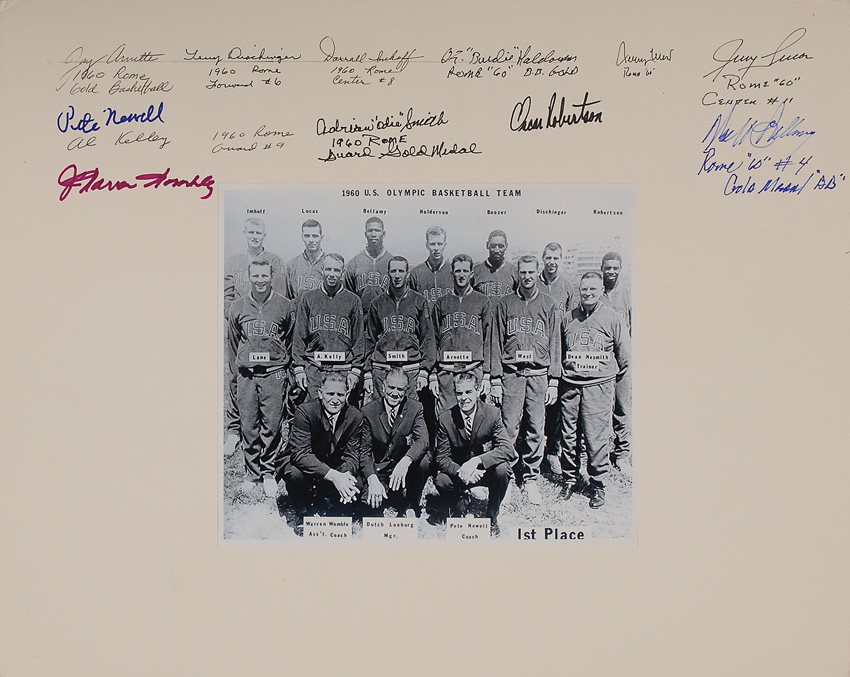 Jay Arnette
1960 Rome
Gold Basketball
Terry Dischinger
1960 Rome
Forward #6
Darrall Imhoff
1960 Rome
Center #8
"Burdie" Haldorson
Rome "60" B.B. Gold
Rome '60
Jerry Lucas
Rome "60"
Center #11
Pete Newell
Al Kelley
1960 Rome
Guard #9
Adrian "Odie" Smith
1960 Rome
Guard Gold Medal
Oscar Robertson
Rome "60" #4
Gold Medal "BB"
Warren Womble
1960 U.S. OLYMPIC BASKETBALL TEAM
Imhoff Lucas Bellamy Holderson Boozer Dischinger Robertson
USA USA USA USA USA
U.S.A U.S.A U.S.A U.S.A U.S.A U.S.A
Lane A. Kelly Smith Arnette West Dean Nesmith
Trainer
Warren Womble Dutch Lonborg Pete Newell
Ass't. Coach Mgr. Coach
1st Place